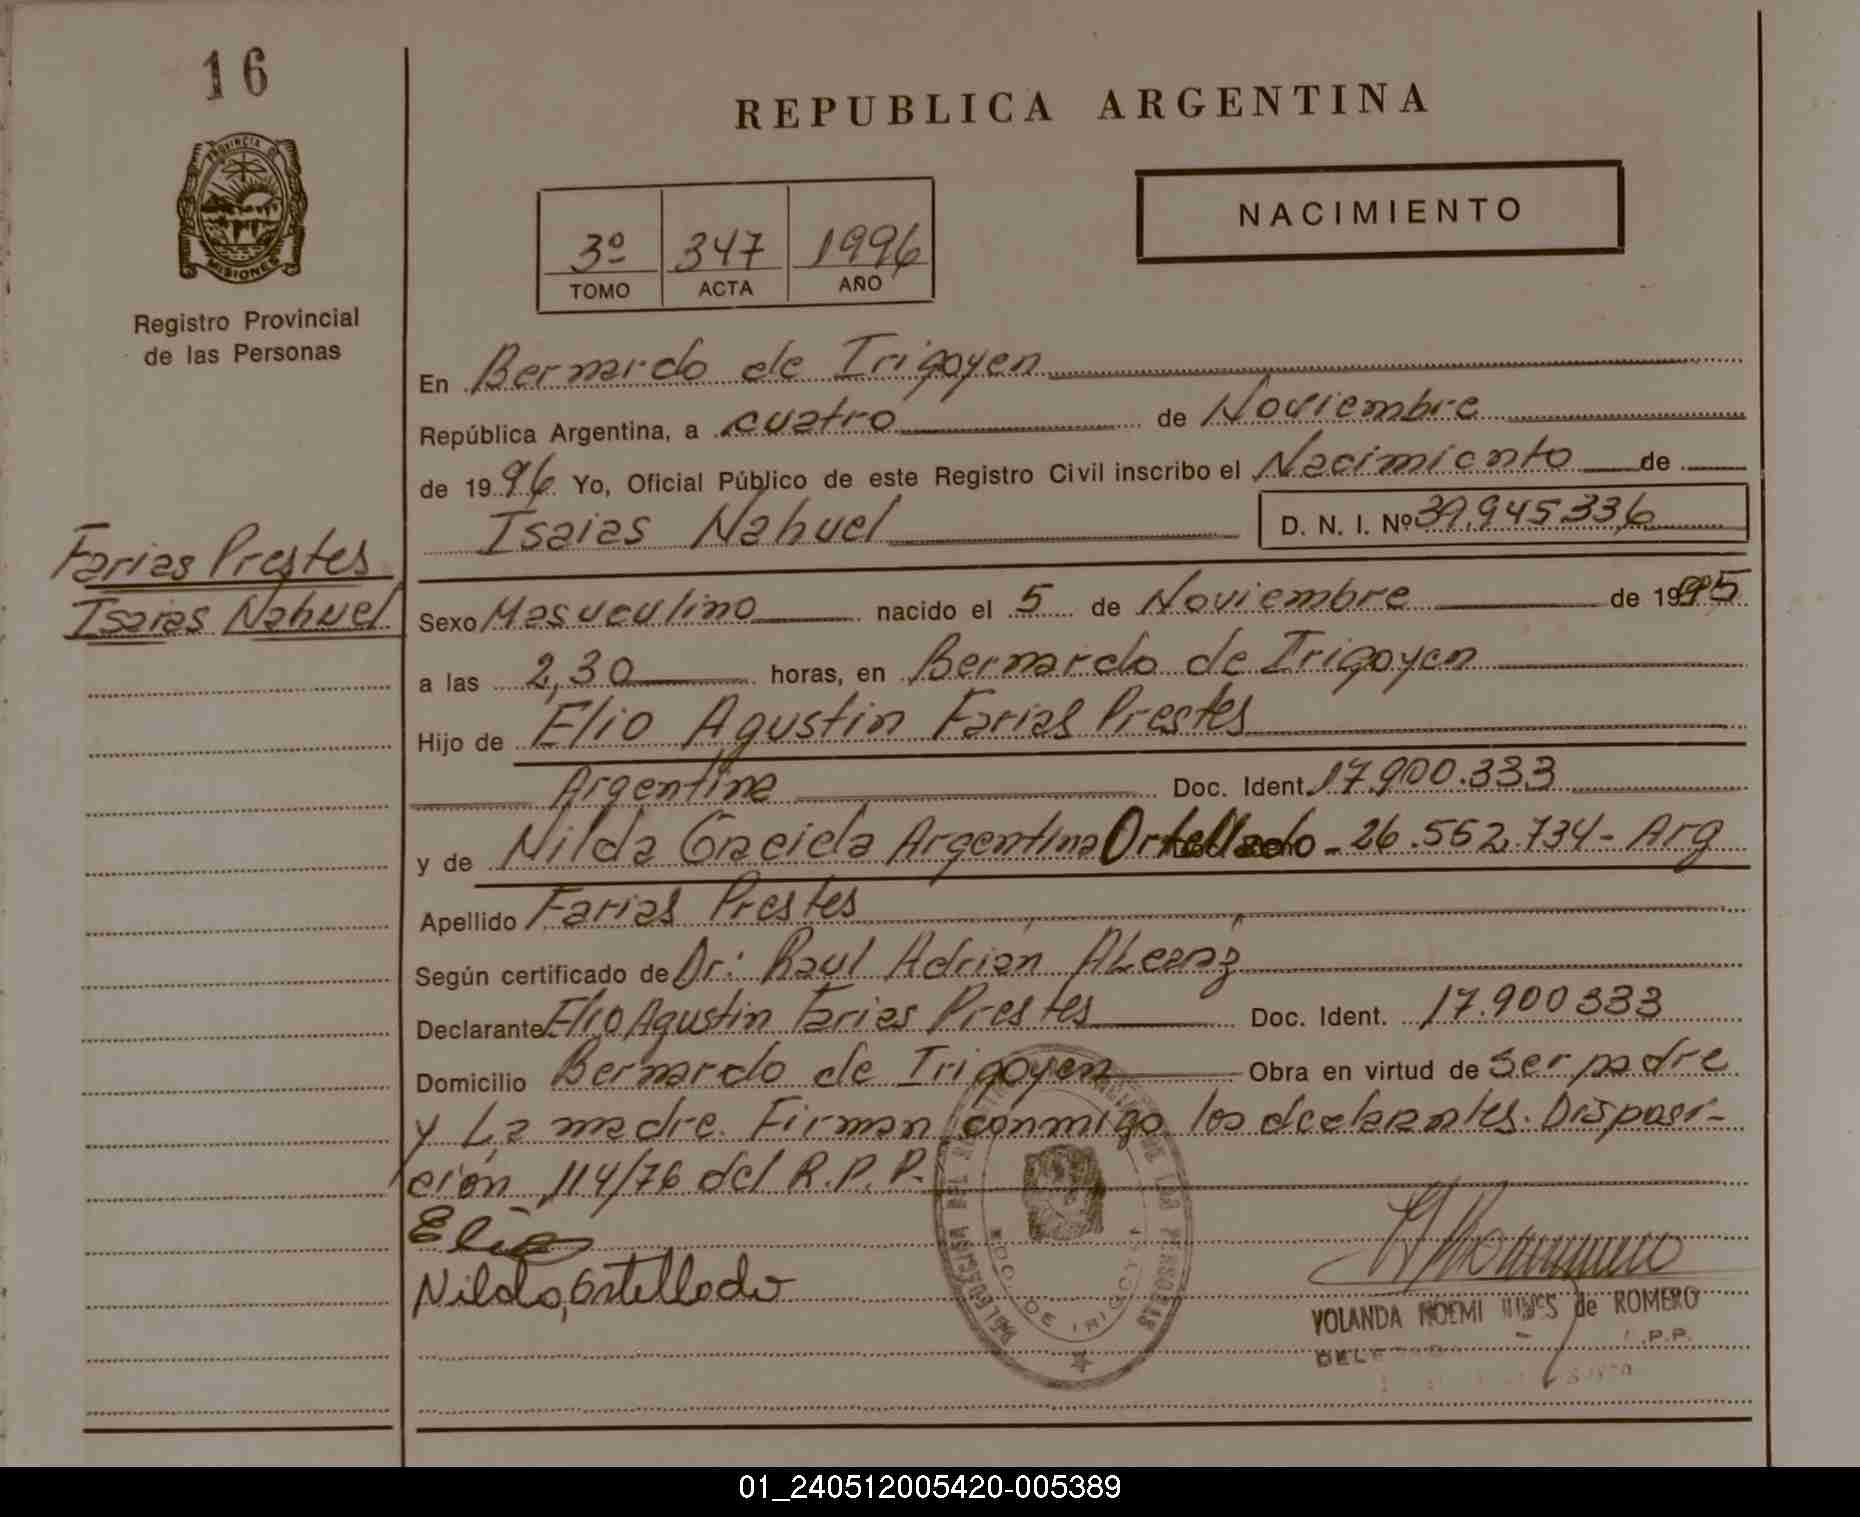 16
PROVINCIA DE
MISIONES
Registro Provincial
de las Personas
REPUBLICA ARGENTINA
NACIMIENTO
3º 347 1996
TOMO ACTA AÑO
En Bernardo de Irigoyen
República Argentina, a cuatro de Noviembre
de 1996 Yo, Oficial Público de este Registro Civil inscribo el Nacimiento de
Isaias Nahuel D. N. I. Nº 39.945.336
Farias Prestes
Isaias Nahuel
Sexo Masuculino nacido el 5 de Noviembre de 1995
a las 2,30 horas, en Bernardo de Irigoyen
Hijo de Elio Agustin Farias Prestes
Argentina Doc. Ident. 17.900.333
y de Nilda Graciela Argentina Ortellado - 26.562.734 - Arg
Apellido Farias Prestes
Según certificado de Dr: Raul Adrian
Declarante Elio Agustin Farias Prestes Doc. Ident. 17.900333
Domicilio Bernardo de Irigoyen Obra en virtud de ser padre
y La madre. Firman conmigo los declarantes. Disposi-
ción 114/76 del R.P.P.
Elio
Nilda Ortellado
DELEGACIA DE LAS PERSONAS
BDO. DE IRIGOYEN
YOLANDA NOEMI de ROMERO
01_240512005420-005389